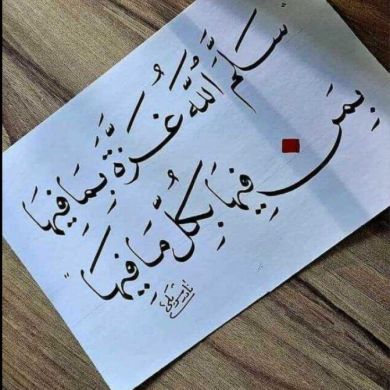 "سَلَّمَ اللّٰهُ غَزَةَ بِمَا فِيهَا
بِمَن فِيهَا بِكُلِّ مَا فِيهَا"